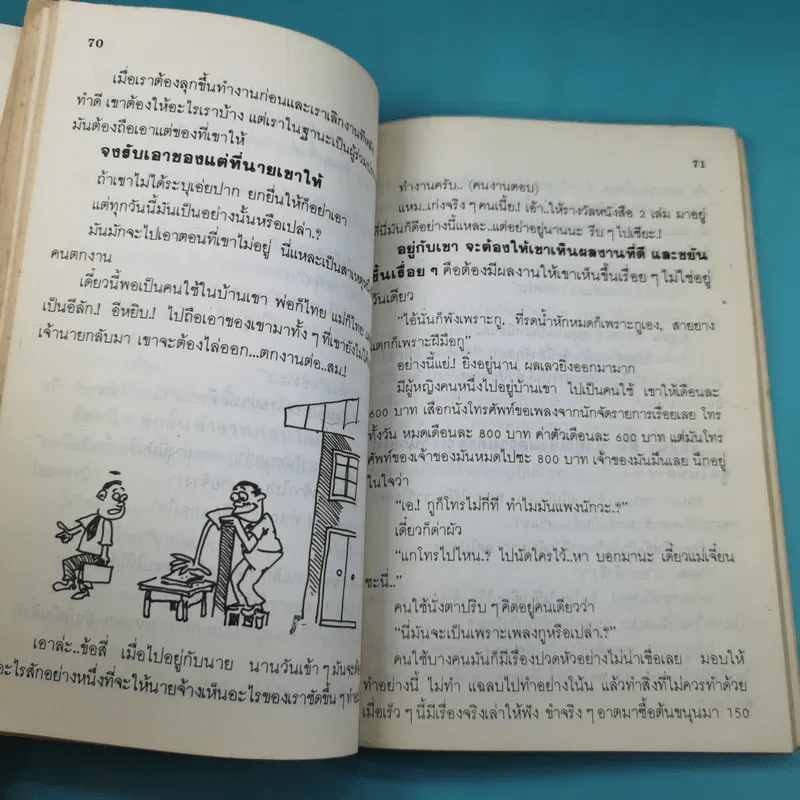 70
เมื่อเราต้องลุกขึ้นทำงานก่อนและเราเลิกงานทีหลัง
ทำดี เขาต้องให้อะไรเราบ้าง แต่เราในฐานะเป็นผู้
มันต้องถือเอาแต่ของที่เขาให้
จงรับเอาของแต่ที่นายเขาให้
ถ้าเขาไม่ได้ระบุเอ่ยปาก ยกยื่นให้ก็อย่าเอา
แต่ทุกวันนี้มันเป็นอย่างนั้นหรือเปล่า.?
มันมักจะไปเอาตอนที่เขาไม่อยู่ นี่แหละเป็นสาเหตุ
คนตกงาน
เดี๋ยวนี้พอเป็นคนใช้ในบ้านเขา พ่อก็ไทย แม่ก็ไทย
เป็นอีลัก.! อีหยิบ.! ไปถือเอาของเขามาทั้ง ๆ ที่เขายังไม่
เจ้านายกลับมา เขาจะต้องไล่ออก...ตกงานต่อ..สม.!
เอาล่ะ..ข้อสี่ เมื่อไปอยู่กับนาย นานวันเข้า ๆ มันจะ
อะไรสักอย่างหนึ่งที่จะให้นายจ้างเห็นอะไรของเราชัดขึ้น ๆ
71
ทำงานครับ.. (คนงานตอบ)
แหม..เก่งจริง ๆ คนเนี้ย.! เอ้า..ให้รางวัลหนังสือ 2 เล่ม มาอยู่
ที่นี่มันก็ดีอย่างนี้แหละ..แต่อย่าอยู่นานนะ รีบ ๆ ไปเซียะ.!
อยู่กับเขา จะต้องให้เขาเห็นผลงานที่ดี และขยัน
ขึ้นเรื่อย ๆ คือต้องมีผลงานให้เขาเห็นขึ้นเรื่อย ๆ ไม่ใช่อยู่
วันเดียว
“ไอ้นั่นก็พังเพราะกู. ที่รดน้ำหักหมดก็เพราะกูเอง, สายยาง
แตกก็เพราะฝีมือกู”
อย่างนี้แย่.! ยิ่งอยู่นาน ผลเลวยิ่งออกมามาก
มีผู้หญิงคนหนึ่งไปอยู่บ้านเขา ไปเป็นคนใช้ เขาให้เดือนละ
600 บาท เสือกนั่งโทรศัพท์ขอเพลงจากนักจัดรายการเรื่อยเลย โทร
ทั้งวัน หมดเดือนละ 800 บาท ค่าตัวเดือนละ 600 บาท แต่มันโทร
ศัพท์ของเจ้าของมันหมดไปซะ 800 บาท เจ้าของมันมึนเลย นึกอยู่
ในใจว่า
“เอ.! กูก็โทรไม่กี่ที ทำไมมันแพงนักวะ.?”
เดี๋ยวก็ด่าผัว
“แกโทรไปไหน.? ไปนัดใครไว้..หา บอกมานะ เดี๋ยวแม่เจี๋ยน
ซะนี่..”
คนใช้นั่งตาปริบ ๆ คิดอยู่คนเดียวว่า
“นี่มันจะเป็นเพราะเพลงกูหรือเปล่า.?”
คนใช้บางคนมันก็มีเรื่องปวดหัวอย่างไม่น่าเชื่อเลย มอบให้
ทำอย่างนี้ ไม่ทำ แฉลบไปทำอย่างโน้น แล้วทำสิ่งที่ไม่ควรทำด้วย
เมื่อเร็ว ๆ นี้มีเรื่องจริงเล่าให้ฟัง ขำจริง ๆ อาตมาซื้อต้นขนุนมา 150